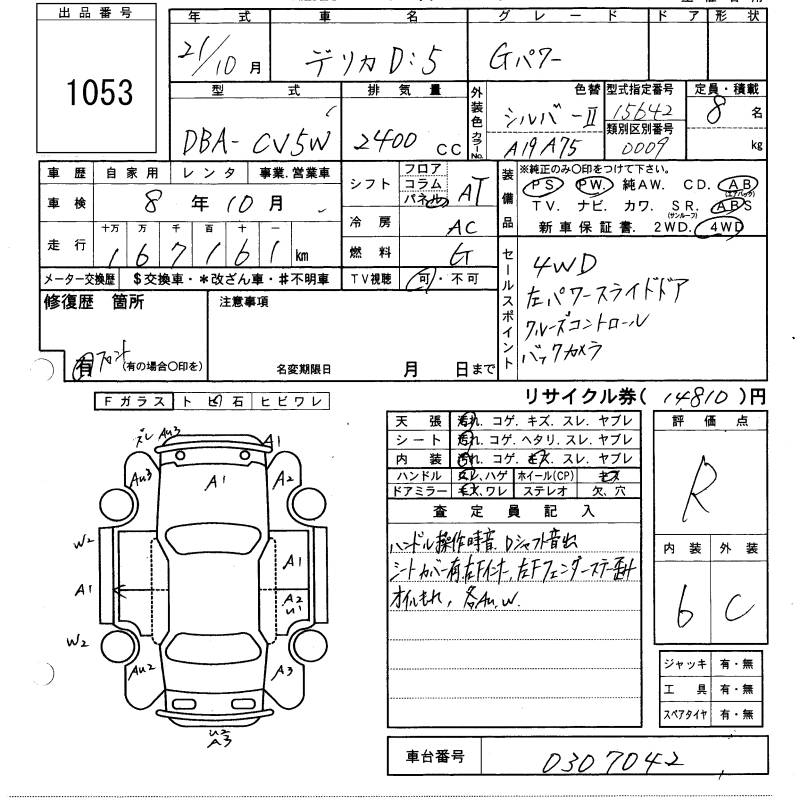 出品番号
1053
年式 車名 グレード ドア 形状
21/10月 デリカD:5 Gパワー
型式 排気量 外装色 カラーNo. 色替 型式指定番号 定員・積載
DBA-CV5W 2400CC シルバーII 15642 8名
A19 A75 類別区別番号 0009 kg
車歴 自家用 レンタ 事業.営業車
車検 8年10月
走行 十万 万 千 百 十 一
167161km
シフト フロア コラム パネル AT
冷房 AC
燃料 G
メーター交換歴 $交換車・*改ざん車・#不明車 TV視聴 可・不可
装備品 ※純正のみ○印をつけて下さい。
PS PW. 純AW. CD. AB (エアバック)
TV. ナビ. カワ. SR. (サンルーフ) ABS
新車保証書. 2WD. 4WD
セールスポイント
4WD
左パワースライドドア
クルーズコントロール
バックカメラ
修復歴 箇所 注意事項
有 フロント (有の場合○印を) 名変期限日 月 日まで
リサイクル券( 14810 )円
Fガラス トビ石 ヒビワレ
天張 汚れ. コゲ. キズ. スレ. ヤブレ
シート 汚れ. コゲ. ヘタリ. スレ. ヤブレ
内装 汚れ. コゲ. キズ. スレ. ヤブレ
ハンドル スレ.ハゲ ホイール(CP) キズ
ドアミラー キズ.ワレ ステレオ 欠、穴
査定員記入
ハンドル操作時音、Dシャフト音出
シートカバー有、左Fインナー、左Fフェンダーステー
オイルもれ, 各Au.W.
評価点
R
内装 外装
6 C
ジャッキ 有・無
工具 有・無
スペアタイヤ 有・無
車台番号 0307042
ズレ Au3 A1
Au3 A1 A2
W2 A1
A1 A2 U1
W2 Au2 A3
U2
A3